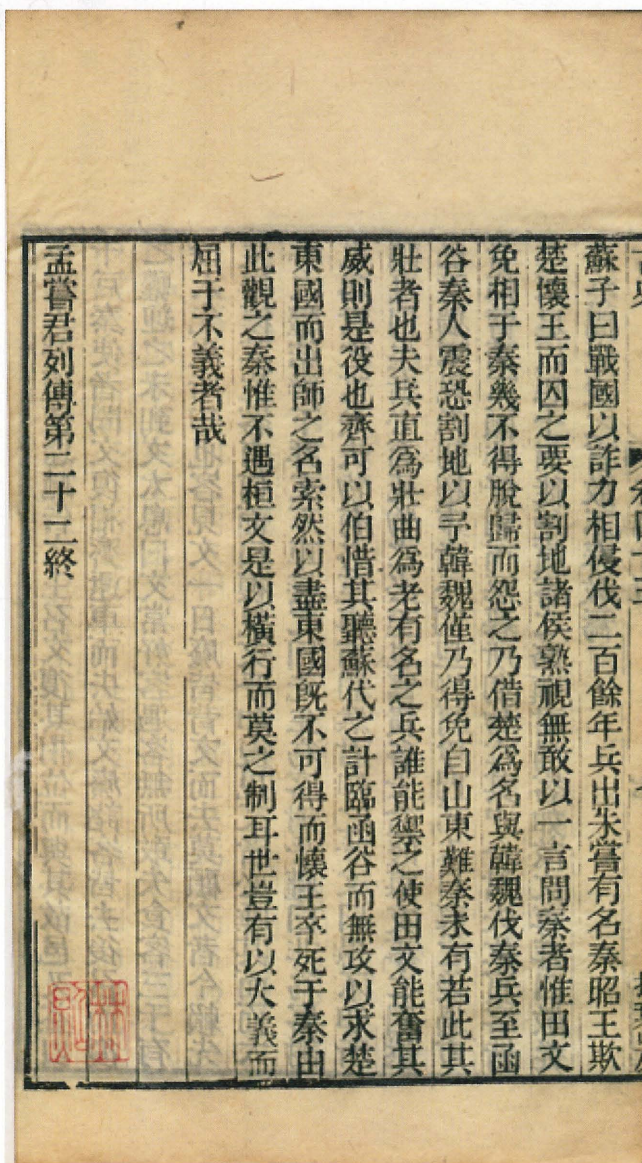 蘇子曰戰國以詐力相侵伐二百餘年兵出未嘗有名秦昭王欺
楚懷王而囚之要以割地諸侯熟視無敢以一言問秦者惟田文
免相于秦幾不得脫歸而怨之乃借楚爲名與韓魏伐秦兵至函
谷秦人震恐割地以予韓魏僅乃得免自山東難秦未有若此其
壯者也夫兵直爲壯曲爲老有名之兵誰能禦之使田文能奮其
威則是役也齊可以伯惜其聽蘇代之計臨函谷而無攻以求楚
東國而出師之名索然以盡東國旣不可得而懷王卒死于秦由
此觀之秦惟不遇桓文是以橫行而莫之制耳世豈有以大義而
屈于不義者哉
孟嘗君列傳第三十二終